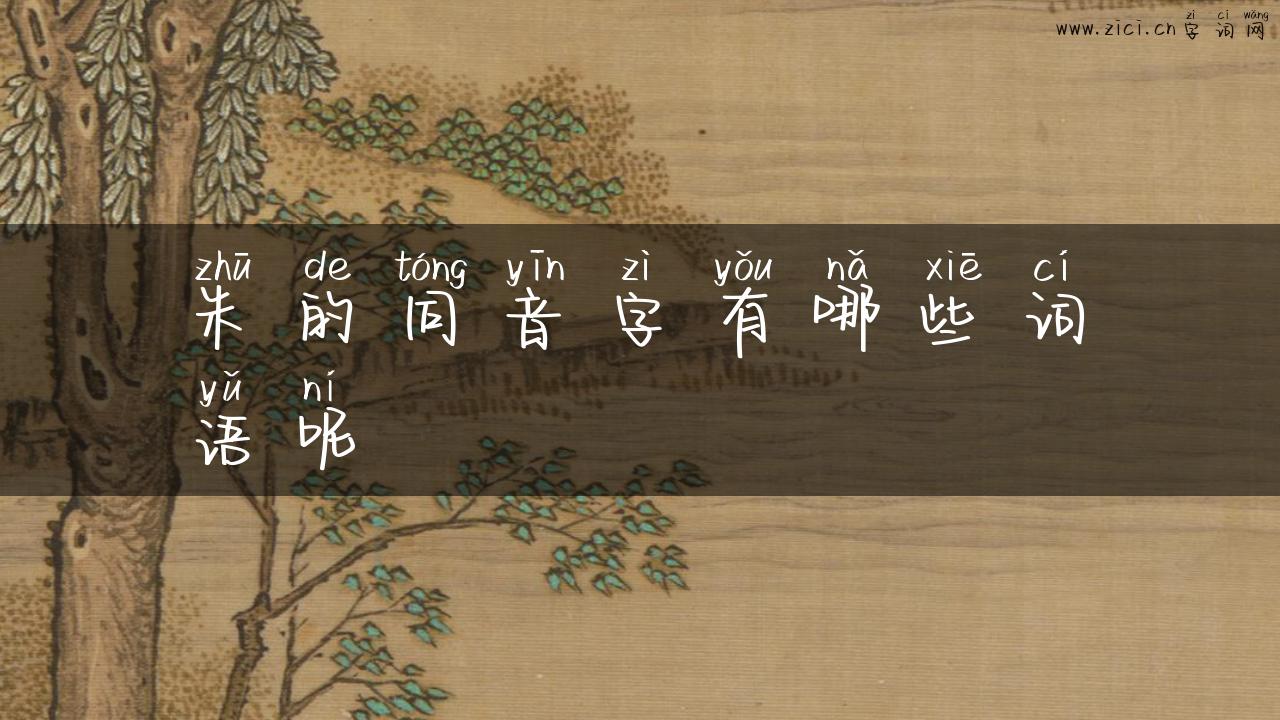 zì cí wǎng
www.zici.cn 字 词 网
zhū de tóng yīn zì yǒu nǎ xiē cí
朱 的 同 音 字 有 哪 些 词
yǔ ní
语 呢